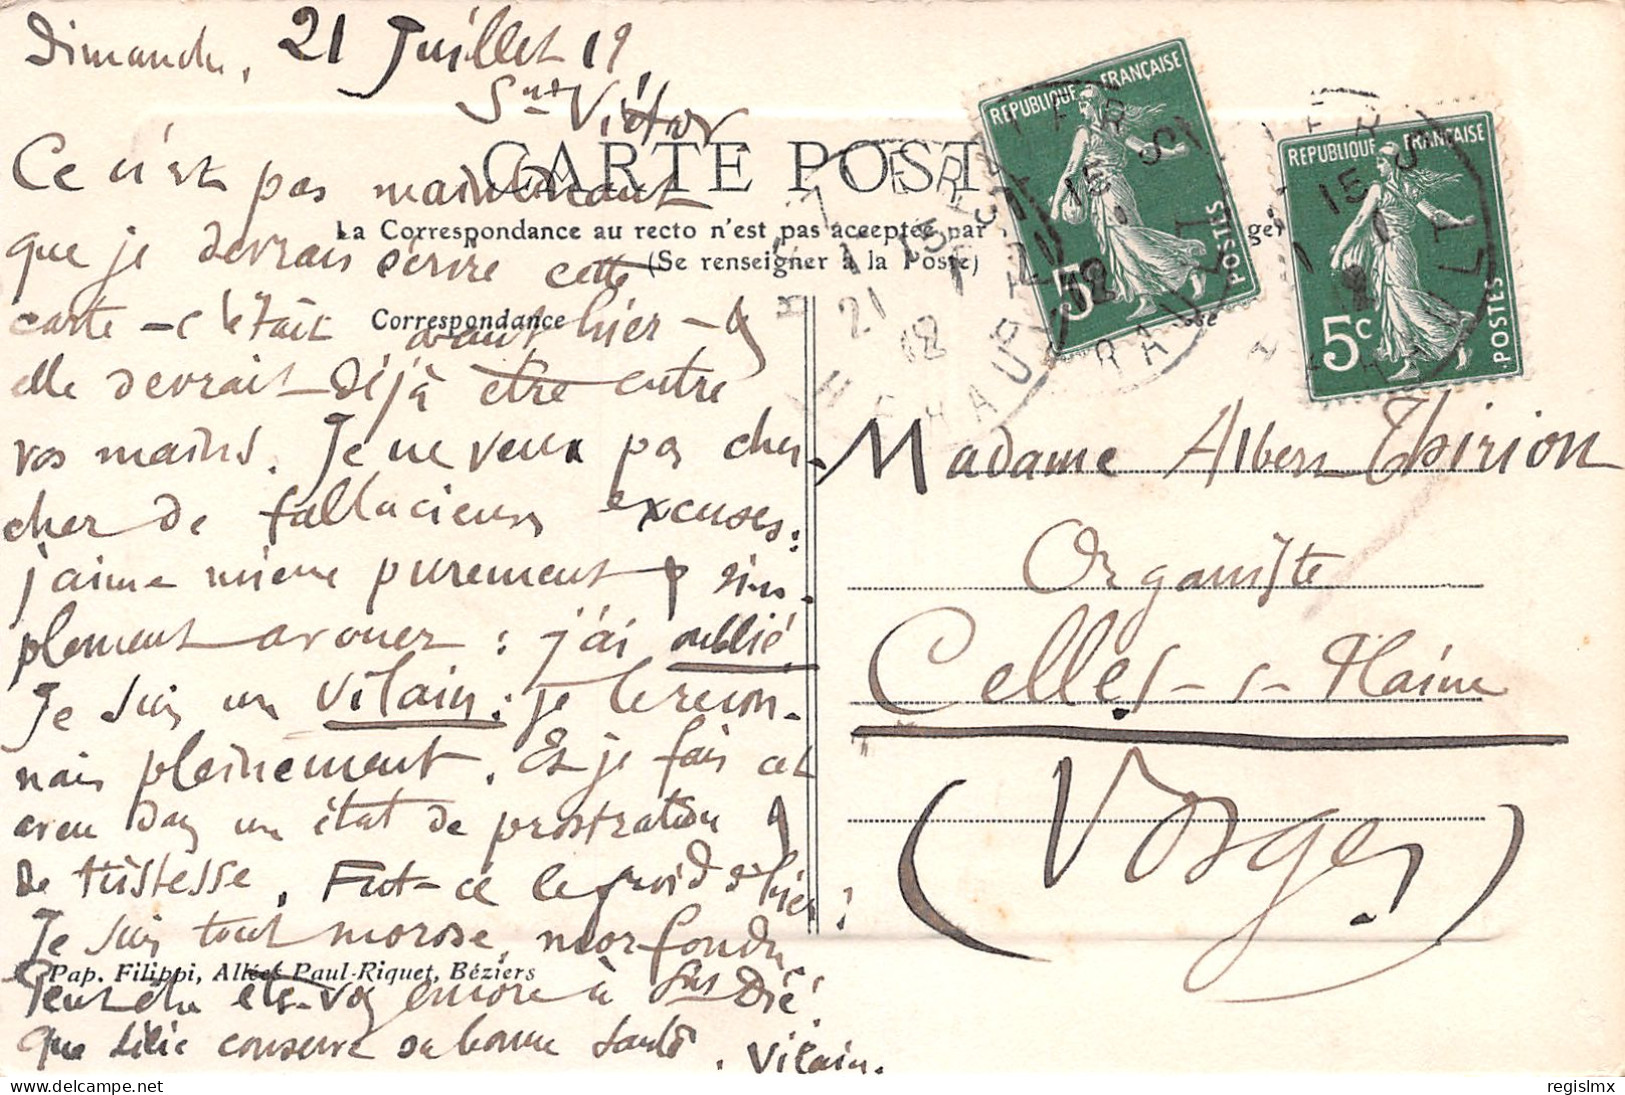 Dimanche, 21 Juillet 19
Snt Victor
CARTE POST
La Correspondance au recto n'est pas acceptée par
(Se renseigner à la Poste)
Correspondance
Ce n'est pas maintenant
que je devrais écrire cette
carte - c'était avant hier - &
elle devrait déjà être entre
vos mains. Je ne veux pas cher-
cher de fallacieuses excuses :
j'aime mieux purement & sim-
plement avouer : j'ai oublié
Je suis un vilain : je le recon-
nais pleinement. Et je fais cet
aveu dans un état de prostration &
de tristesse. Fut-ce le froid d'hier ?
Je suis tout morose, morfondu
Peut être êtes-vous encore à Sus Dié.
Que Lilie conserve sa bonne santé. Vilain.
Pap. Filippi, Allées Paul-Riquet, Béziers
REPUBLIQUE FRANÇAISE
5c POSTES
REPUBLIQUE FRANÇAISE
5c POSTES
Madame Albert Thirion
Organiste
Celles-s-Plaine
(Vosges)
regislmx